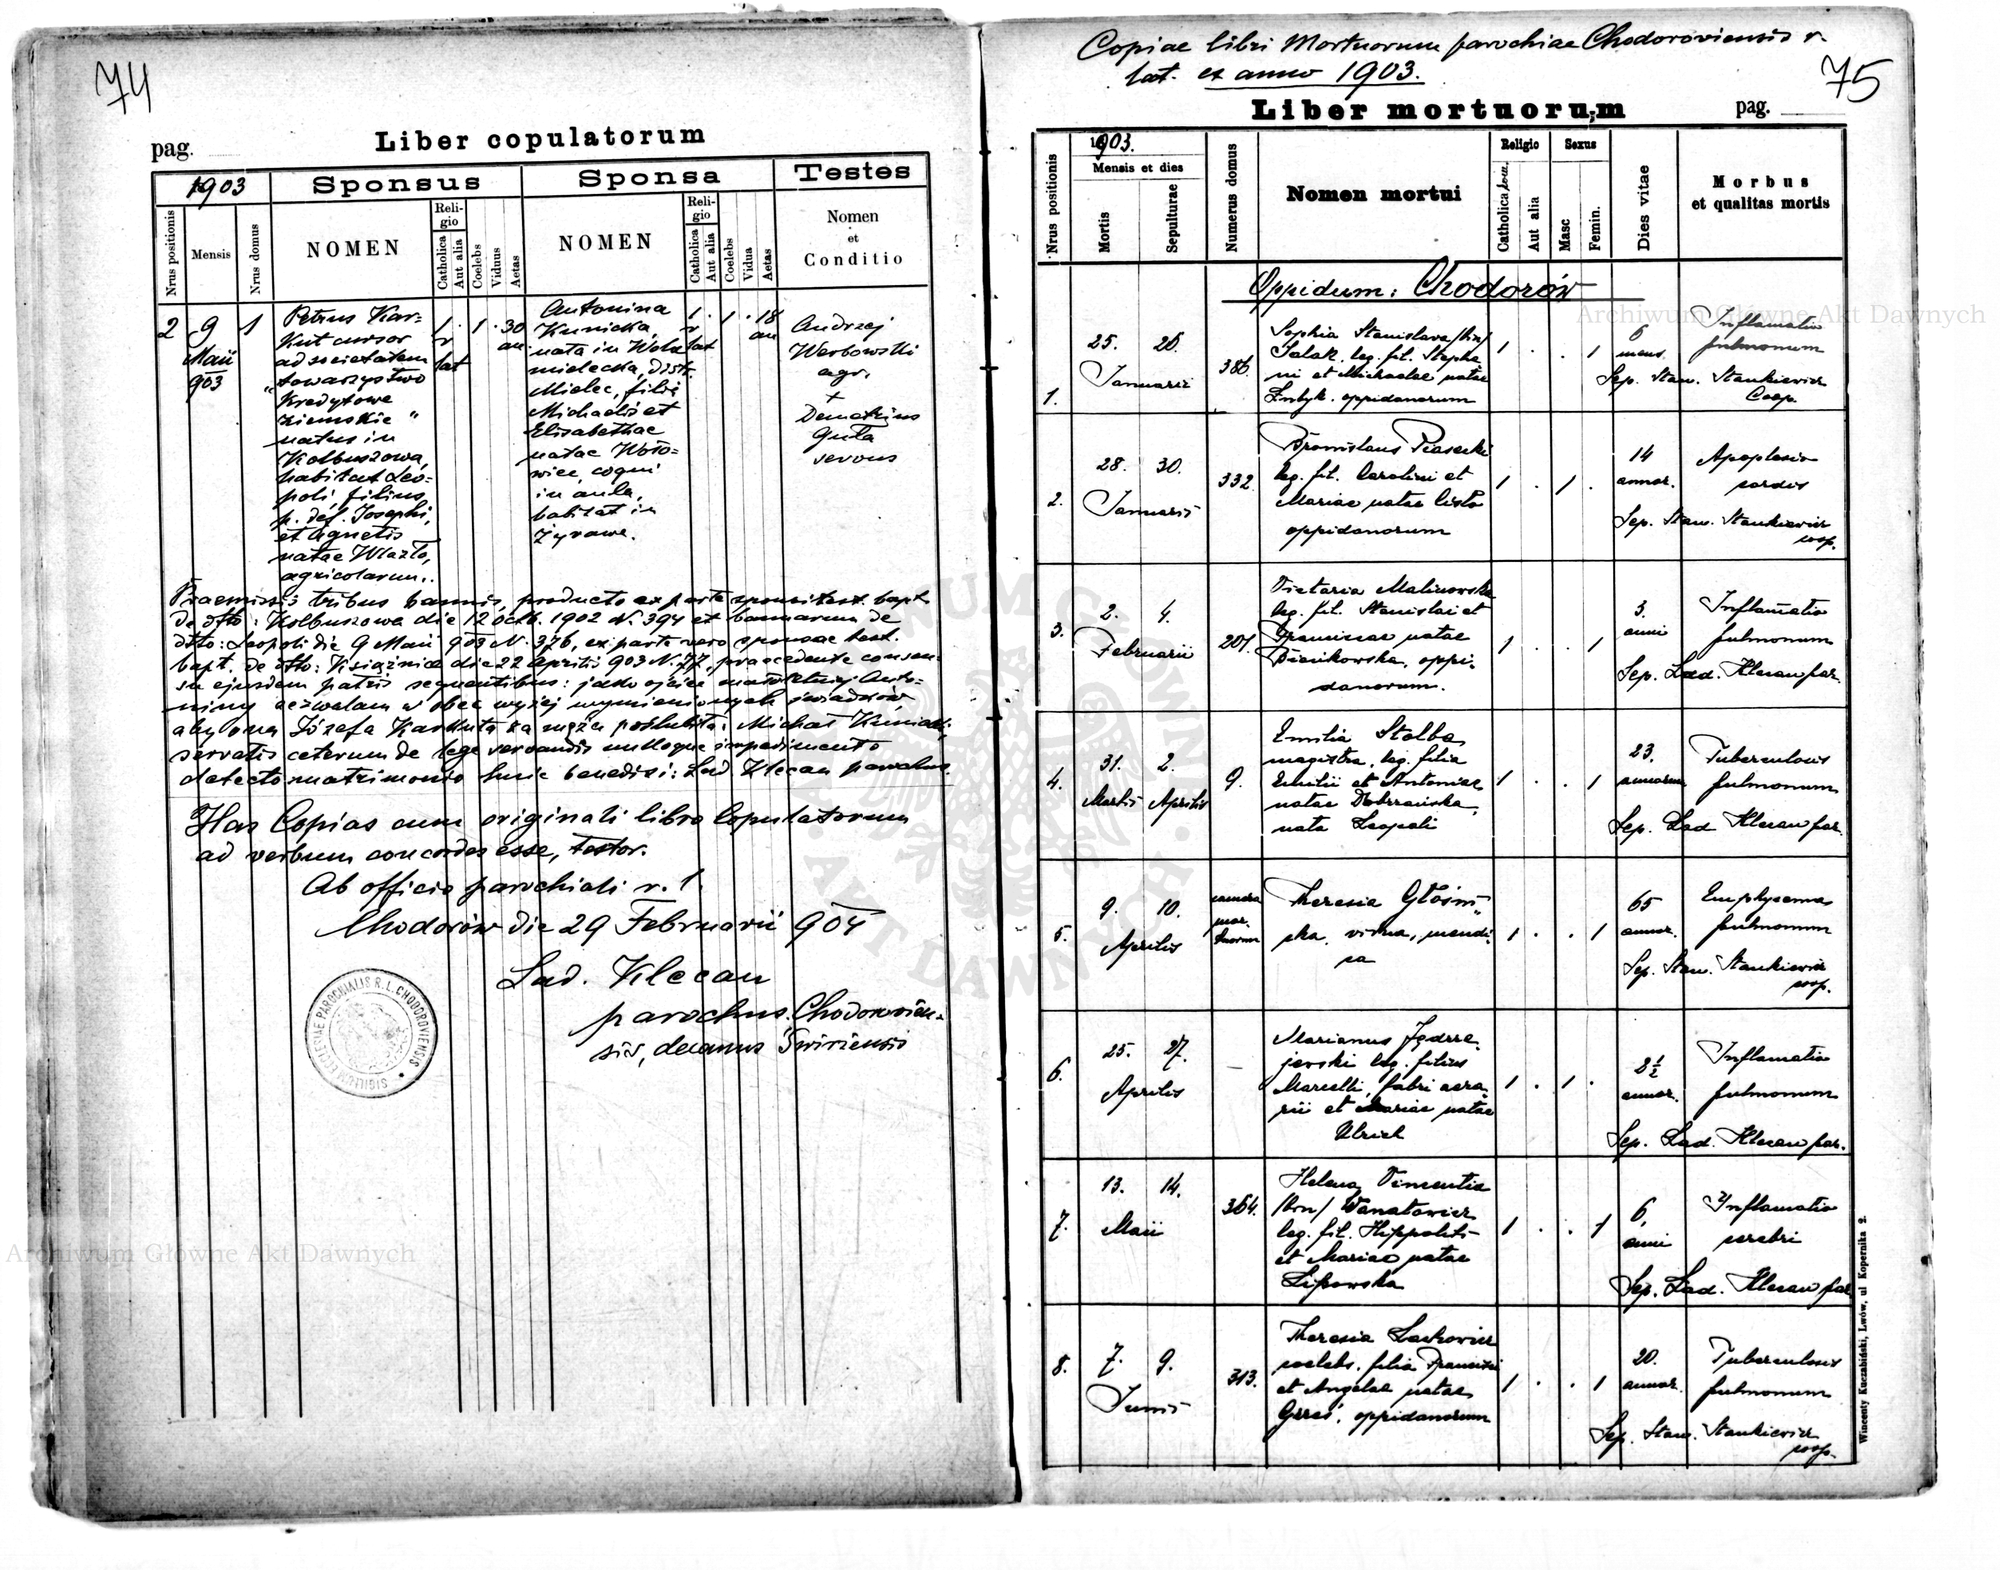 74
pag.
Liber copulatorum
1903
Sponsus
Sponsa
Testes
Nrus positionis
Mensis
Nrus domus
NOMEN
Religio
Catholica
Aut alia
Coelebs
Viduus
Aetas
NOMEN
Religio
Catholica
Aut alia
Coelebs
Vidua
Aetas
Nomen
et
Conditio
2
9
Maii
903
1
Petrus Kar=
Kut cursor
ad societatem
"towarzystwo
Kredytowe
ziemskie"
natus in
Kolbuszowa,
habitat Leo=
poli, filius
p. def. Josephi,
et Agnetis
natae Wlazło,
agricolarum.
1. r lat
1
30 an.
Antonina
Kunicka,
nata in Wola
mielecka, distr.
Mielec, filia
Michaelis et
Elisabethae
natae Woło=
wiec, coqui
in aula,
habitat in
Żyrawa.
1. r lat
1
18 an
Andrzej
Werbowski
agr.
+
Demetrius
Guła
servus
Praemissis tribus bannis, producto ex parte sponsi test. bapt.
de dtto: Kolbuszowa die 12 octb. 1902 N. 394 et bannorum de
dtto: Leopoli die 9 Maii 903 N. 376, ex parte vero sponsae test.
bapt. de dtto: Książnice die 22 Aprilis 903 N. 77, praecedente consen=
su ejusdem patris sequentibus: jako ojciec małoletniej Anto=
niny zezwalam w obec wyżej wymienionych świadków
aby ona Józefa Karkuta za męża poślubiła: Michał Kunicki,
servatis ceterum de lege servandis nulloque impedimento
detecto matrimonio huic benedixi: Lad. Klecan parochus.
Has Copias cum originali libro Copulatorum
ad verbum concordes esse, testor.
Ab officio parochiali r. l.
Chodorów die 29 Februarii 904
Lad. Klecan
parochus Chodorovien=
sis, decanus Świriensis
SIGILLIUM ECCLESIAE PAROCHIALIS R. L. CHODOROVIENSIS
Copiae libri Mortuorum parochiae Chodoroviensis r.
lat. ex anno 1903.
75
Liber mortuorum
pag.
Nrus positionis
1903.
Mensis et dies
Mortis
Sepulturae
Numerus domus
Nomen mortui
Religio
Catholica
Aut alia
Sexus
Masc
Femin.
Dies vitae
Morbus
et qualitas mortis
Oppidum: Chodorów
1.
25. 26.
Januarii
386.
Sophia Stanislava /bin/
Salak, leg. fil. Stepha
ni et Michaelae natae
oppidanorum
1 . . 1
6
mens.
Inflamatio
pulmonum
Sep. Stan. Stankiewicz
Coop.
2.
28. 30.
Januarii
332.
Bronislaus Piasecki
leg. fil. Carolini et
Mariae natae Cisło
oppidanorum
1 . 1 .
14
annor.
Apoplexia
cordis
Sep. Stan. Stankiewicz
coop.
3.
2. 4.
Februarii
201.
Victoria Malinowska
leg. fil. Stanislai et
Franciscae natae
Bieńkowska, oppi=
danorum.
1 . . 1
3.
anni
Inflamatio
pulmonum
Sep. Lad. Klecan par.
4.
31. 2.
Martii Aprilis
9.
Emilia Stolba,
magistra, leg. filia
Emilii et Antoniae
natae Dobrzańska,
nata Leopoli
1 . . 1
23.
annorum
Tuberculosis
pulmonum
Sep. Lad. Klecan par.
5.
9. 10.
Aprilis
camera
mor
tuorum
Theresia Głośni=
ska, vidua, mendi=
ca
1 . . 1
65
annor.
Emphysema
pulmonum
Sep. Stan. Stankiewicz
coop.
6.
25. 27.
Aprilis
Marianus Jędrze=
jovski leg. filius
Marcelli, fabri aera=
rii et Mariae natae
Ulrich
1 . 1 .
2½
annor.
Inflamatio
pulmonum
Sep. Lad. Klecan par.
7.
13. 14.
Maii
364.
Helena Vincentia
/bin/ Wanatowicz
leg. fil. Hippoliti
et Mariae natae
Lipowska
1 . . 1
6,
anni
Inflamatio
cerebri
Sep. Lad. Klecan par.
8.
7. 9.
Junii
313.
Theresia Lackovicz
coelebs, filia Francisci
et Angelae natae
Grześ, oppidanorum
1 . . 1
20.
annor.
Tuberculosis
pulmonum
Sep. Stan. Stankiewicz
coop.
Wincenty Kuczabiński, Lwów, ul Kopernika 2.
Archiwum Główne Akt Dawnych
Archiwum Główne Akt Dawnych
ARCHIWUM GŁÓWNE AKT DAWNYCH